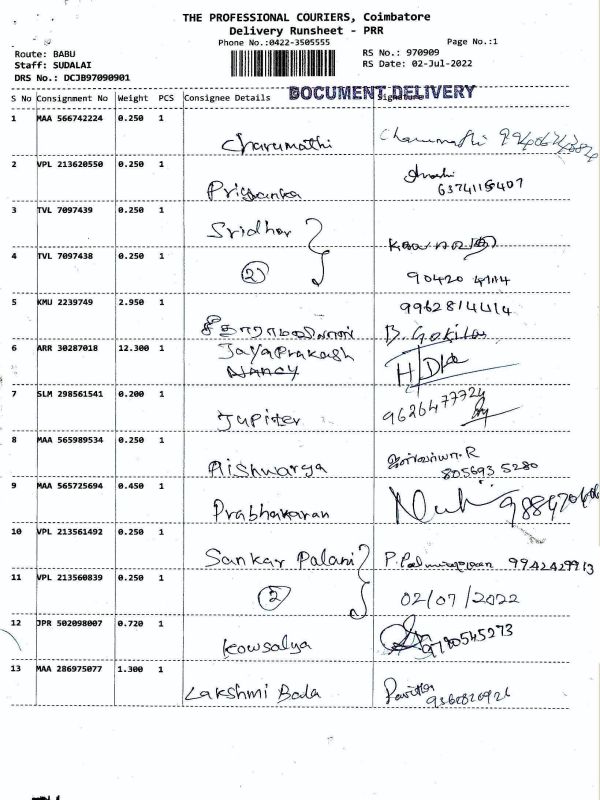 THE PROFESSIONAL COURIERS, Coimbatore
Delivery Runsheet - PRR
Phone No.:0422-3505555 Page No.:1
Route: BABU RS No.: 970909
Staff: SUDALAI RS Date: 02-Jul-2022
DRS No.: DCJB97090901
DOCUMENT DELIVERY
S No Consignment No Weight PCS Consignee Details Signature
1 MAA 566742224 0.250 1
Charumathi Charumathi
2 VPL 213620550 0.250 1
Priyanka
3 TVL 7097439 0.250 1
Sridhar
4 TVL 7097438 0.250 1
2
5 KMU 2239749 2.950 1 9962814414
B. Gokila
6 ARR 30287018 12.300 1 JayaPrakash
NANCY
7 SLM 298561541 0.200 1 9626477724
Jupiter
8 MAA 565989534 0.250 1
Aishwarya 805693 5280
9 MAA 565725694 0.450 1
Prabhakaran
10 VPL 213561492 0.250 1
Sankar Palani 9942429913
11 VPL 213560839 0.250 1
2 02/07/2022
12 JPR 502098007 0.720 1
Kowsalya 9790545273
13 MAA 286975077 1.300 1
Lakshmi Bada Pavitha
9360820926